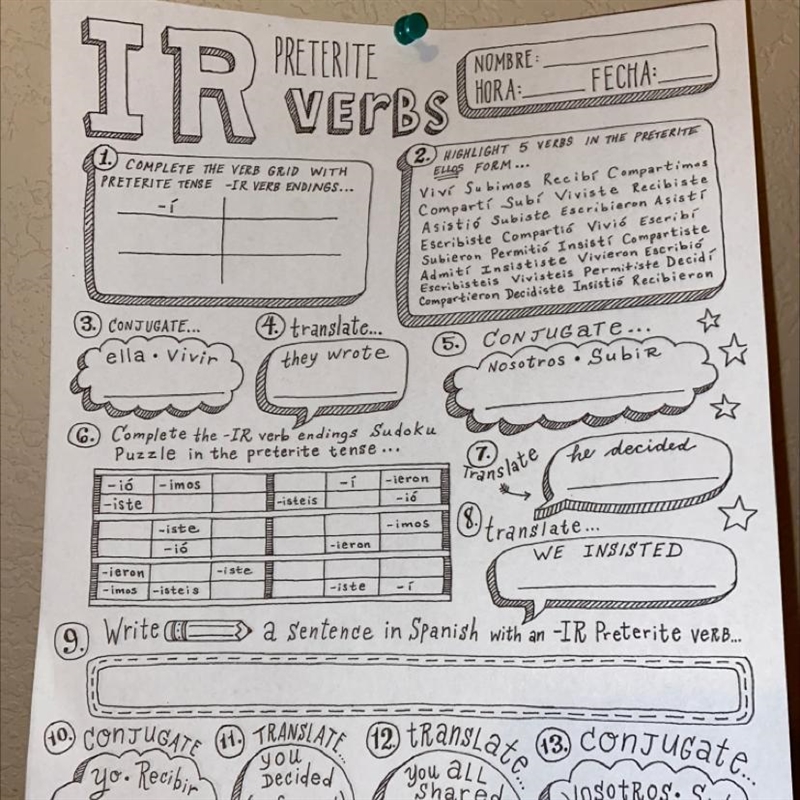 IR PRETERITE VERBS
NOMBRE:
HORA: FECHA:
1. COMPLETE THE VERB GRID WITH
PRETERITE TENSE -IR VERB ENDINGS...
-í
2. HIGHLIGHT 5 VERBS IN THE PRETERITE
ELLOS FORM...
Viví Subimos Recibí Compartimos
Compartí Subí Viviste Recibiste
Asistió Subiste Escribieron Asistí
Escribiste Compartió Vivió Escribí
Subieron Permitió Insistí Compartiste
Admití Insististe Vivieron Escribió
Escribisteis Vivisteis Permitiste Decidí
Compartieron Decidiste Insistió Recibieron
3. CONJUGATE...
ella • Vivir
4. translate...
they wrote
5. CONJUGATE...
Nosotros • Subir
6. Complete the -IR verb endings Sudoku
Puzzle in the preterite tense...
-ió -imos -í -ieron
-iste -isteis -ió
-iste -imos
-ió -ieron
-ieron -iste
-imos -isteis -iste -í
7. Translate
he decided
8. translate...
WE INSISTED
9. Write a sentence in Spanish with an -IR Preterite verb...
10. CONJUGATE
yo. Recibir
11. TRANSLATE...
you
Decided
12. translate...
you all
shared
13. CONJUGATE...